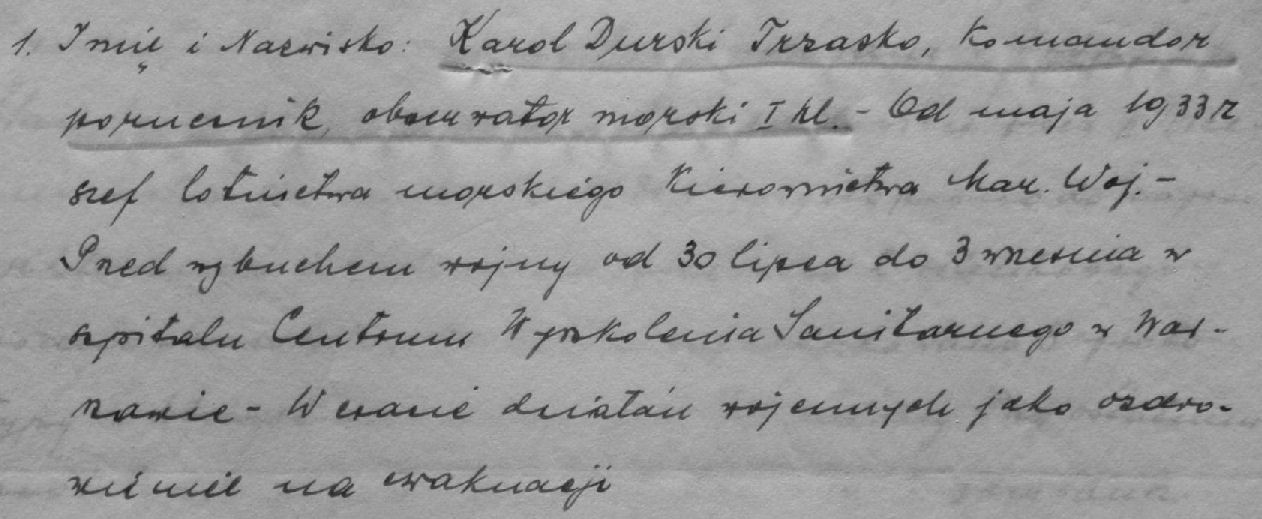 1. Imię i Nazwisko: Karol Durski Trzasko, Komandor
porucznik, obserwator morski I kl. - Od maja 1933 r
szef lotnictwa morskiego Kierownictwa Mar. Woj. -
Przed wybuchem wojny od 30 lipca do 3 wrzesnia w
szpitalu Centrum Wyszkolenia Sanitarnego w War-
szawie - W czasie działań wojennych jako ozdro-
wieniec na ewakuacji